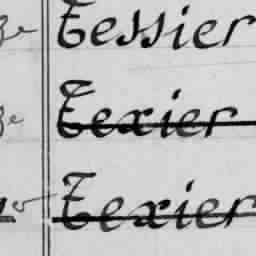 Tessier
Texier
Texier